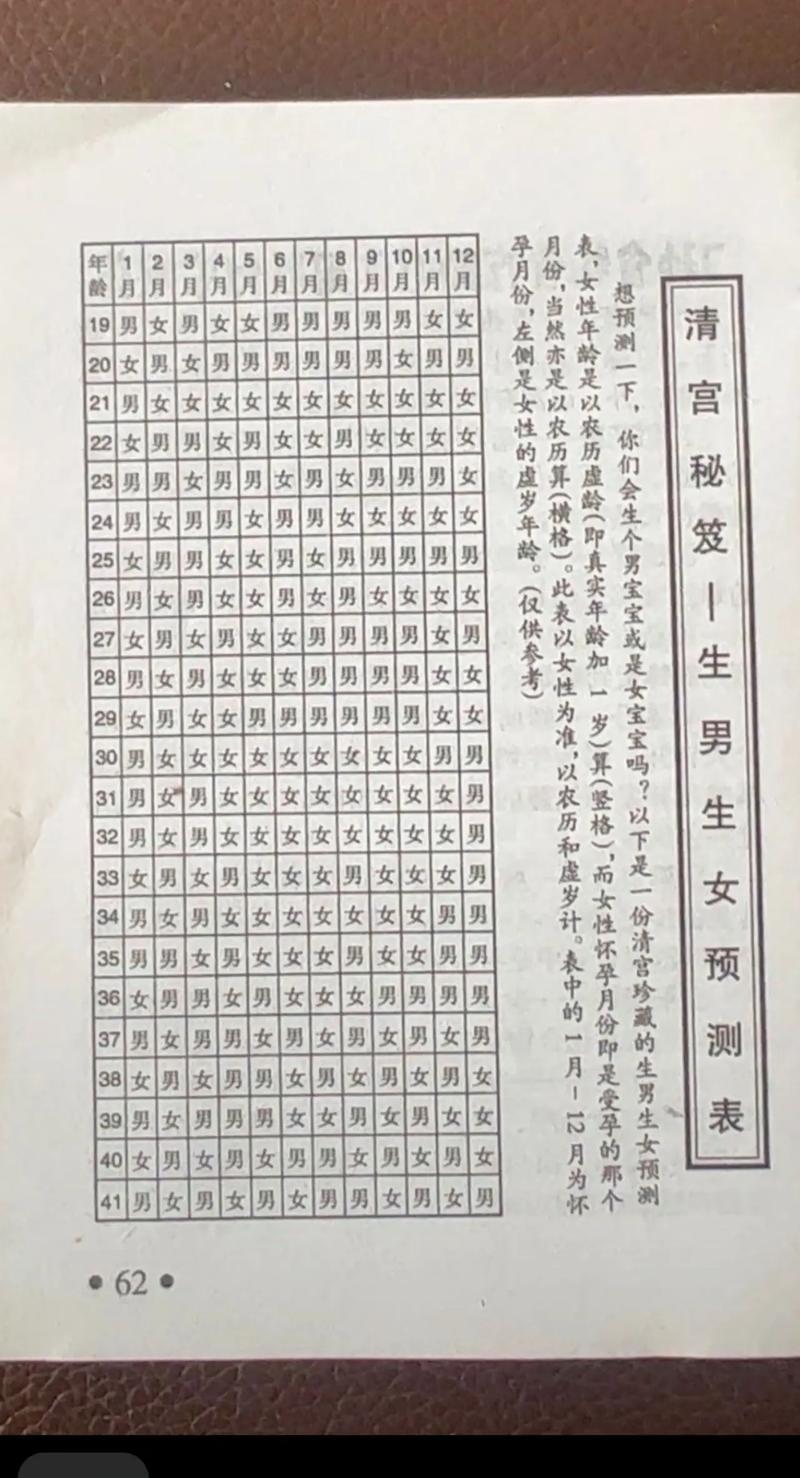 清宫秘笈—生男生女预测表
想预测一下，你们会生个男宝宝或是女宝宝吗？以下是一份清宫珍藏的生男生女预测
表，女性年龄是以农历虚龄(即真实年龄加1岁)算(竖格)，而女性怀孕月份即是受孕的那个
月份，当然亦是以农历算(横格)。此表以女性为准，以农历和虚岁计。表中的1月-12月为怀
孕月份，左侧是女性的虚岁年龄。(仅供参考)
年龄 1月 2月 3月 4月 5月 6月 7月 8月 9月 10月 11月 12月
19 男 女 男 女 女 男 男 男 男 男 女 女
20 女 男 女 男 男 男 男 男 男 女 男 男
21 男 女 女 女 女 女 女 女 女 女 女 女
22 女 男 男 女 男 女 女 男 女 女 女 女
23 男 男 女 男 男 女 男 女 男 男 男 女
24 男 女 男 男 女 男 男 女 女 女 女 女
25 女 男 男 女 女 男 女 男 男 男 男 男
26 男 女 男 女 女 男 女 男 女 女 女 女
27 女 男 女 男 女 女 男 男 男 男 女 男
28 男 女 男 女 女 女 男 男 男 男 女 女
29 女 男 女 女 男 男 男 男 男 男 女 女
30 男 女 女 女 女 女 女 女 女 女 男 男
31 男 女 男 女 女 女 女 女 女 女 女 男
32 男 女 男 女 女 女 女 女 女 女 女 男
33 女 男 女 男 女 女 女 男 女 女 女 男
34 男 女 男 女 女 女 女 女 女 女 男 男
35 男 男 女 男 女 女 女 男 女 女 男 男
36 女 男 男 女 男 女 女 女 男 男 男 男
37 男 女 男 男 女 男 女 男 女 男 女 男
38 女 男 女 男 男 女 男 女 男 女 男 女
39 男 女 男 男 男 女 女 男 女 男 女 女
40 女 男 女 男 女 男 男 女 男 女 男 女
41 男 女 男 女 男 女 男 男 女 男 女 男
• 62 •